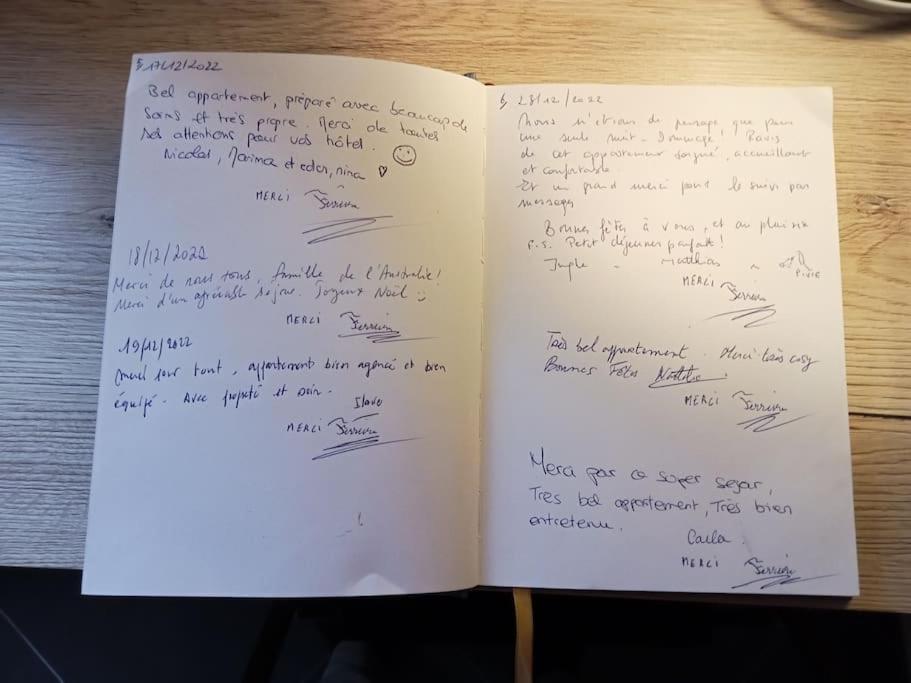 17/12/2022
Bel appartement, préparé avec beaucoup de
soins et très propre. Merci de toutes
ses attentions pour vos hôtel.
Nicolas, et eden, nina
MERCI
18/12/2022
Merci de nous tous, famille de l'Australie!
Merci d'un agréable séjour. Joyeux Noël
MERCI
19/12/2022
Merci pour tout, appartement bien agencé et bien
équipé. Avec propreté et soin.
MERCI
28/12/2022
Nous n'étions de passage que pour
une seule nuit - Dommage! Ravis
de cet appartement soigné, accueillant
et confortable.
Et un grand merci pour le suivi par
messages
Bonnes fêtes à vous, et au plaisir
P.S. Petit déjeuner parfait!
Matthias
MERCI
Très bel appartement. Merci très cosy
Bonnes Fêtes
MERCI
Merci par ce super sejar,
Tres bel appartement, Très bien
entretenu.
Carla.
MERCI